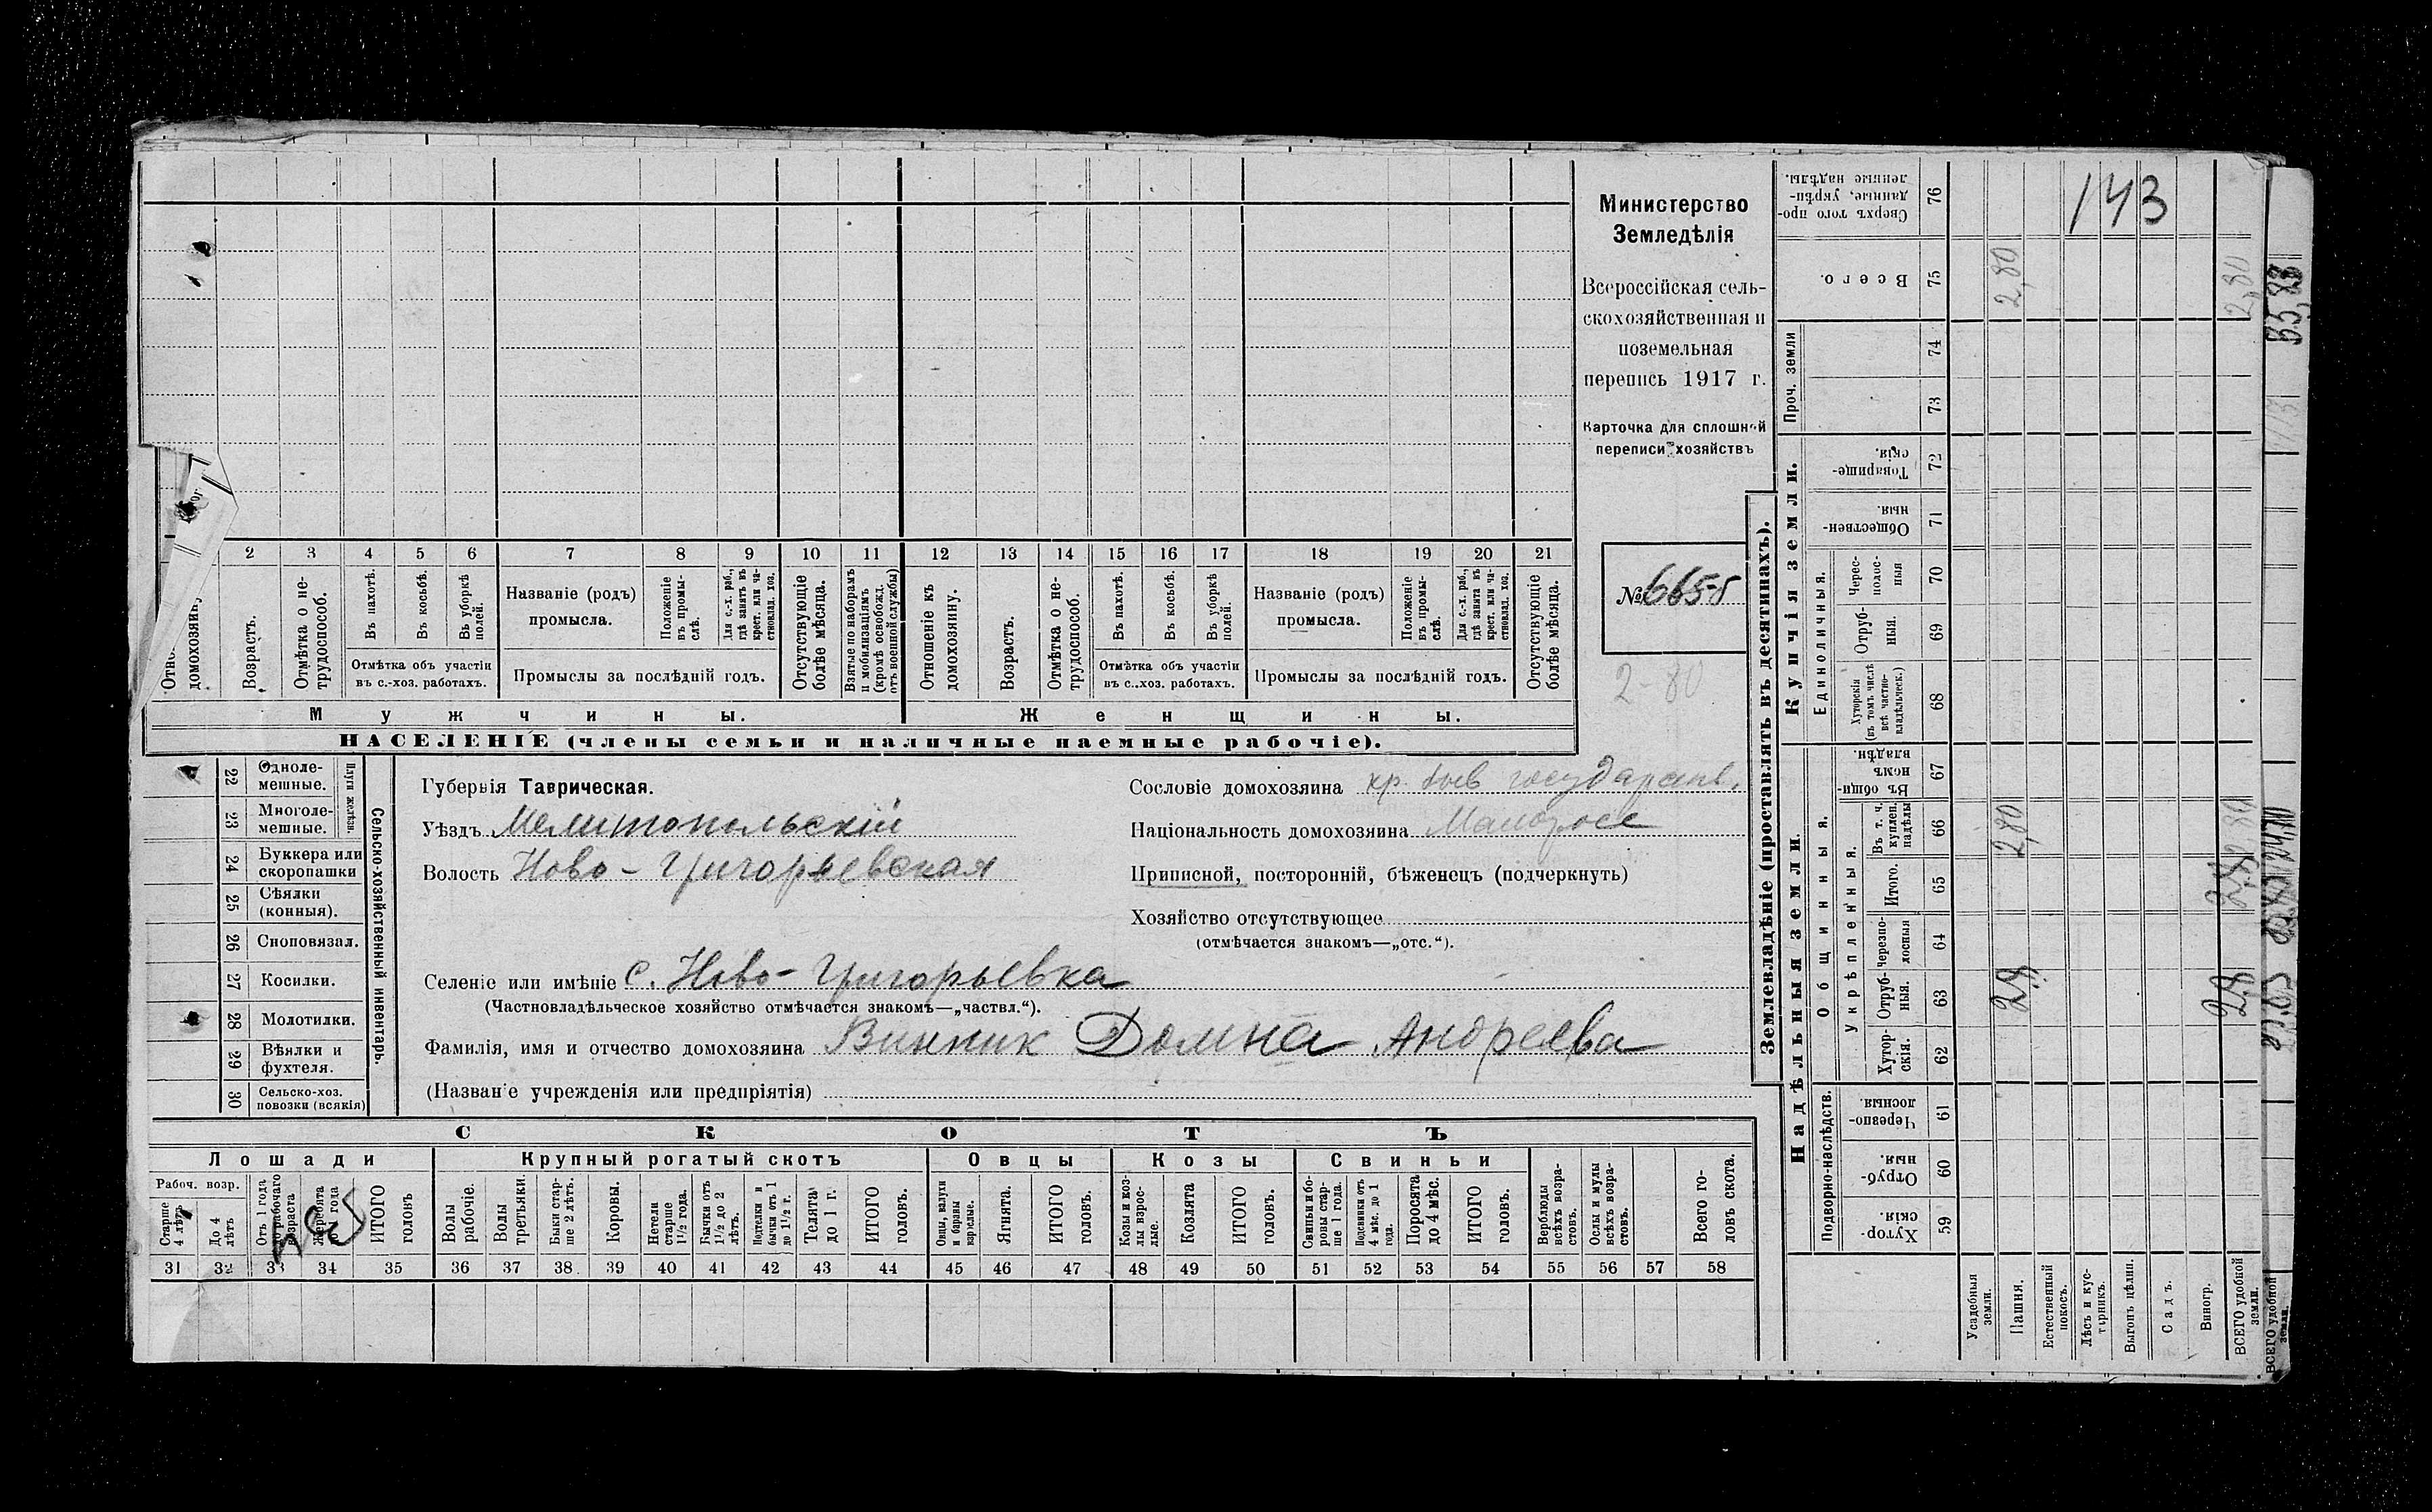 Министерство
Земледѣлія
Всероссійская сель-
скохозяйственная и
поземельная
перепись 1917 г.
Карточка для сплошной
переписи хозяйствъ
№ 6655
2-80
2 3 4 5 6 7 8 9 10 11 12 13 14 15 16 17 18 19 20 21
домохозяину
Возрастъ.
Отмѣтка о не-
трудоспособ.
Въ пахотѣ.
Въ косьбѣ.
Въ уборкѣ
полей.
Отмѣтка объ участіи
въ с.-хоз. работахъ.
Названіе (родъ)
промысла.
Положеніе
въ промы-
слѣ.
Для с.-х. раб.,
гдѣ занятъ въ
крест. или ча-
стновлад. хоз.
Промыслы за послѣдній годъ.
Отсутствующіе
болѣе мѣсяца.
Взятые по наборамъ
и мобилизаціямъ
(кромѣ освобожд.
отъ военной службы)
Отношеніе къ
домохозяину.
Возрастъ.
Отмѣтка о не-
трудоспособ.
Въ пахотѣ.
Въ косьбѣ.
Въ уборкѣ
полей.
Отмѣтка объ участіи
въ с..хоз. работахъ.
Названіе (родъ)
промысла.
Положеніе
въ промы-
слѣ.
Для с.-х. раб.,
гдѣ занята въ
крест. или ча-
стновлад. хоз.
Промыслы за послѣдній годъ.
Отсутствующіе
болѣе мѣсяца.
Мужчины.
Женщины.
НАСЕЛЕНІЕ (члены семьи и наличные наемные рабочіе).
22 Одноле-
мешные.
23 Многоле-
мешные.
Плуги желѣзн.
24 Буккера или
скоропашки
25 Сѣялки
(конныя).
26 Сноповязал.
27 Косилки.
28 Молотилки.
29 Вѣялки и
фухтеля.
30 Сельско-хоз.
повозки (всякія)
Сельско-хозяйственный инвентарь.
Губернія Таврическая.
Уѣздъ Мелитопольскій
Волость Ново-Григорьевская
Селеніе или имѣніе с. Ново-Григорьевка
(Частновладѣльческое хозяйство отмѣчается знакомъ—„частвл.“).
Фамилія, имя и отчество домохозяина Винник Домна Андреева
(Названіе учрежденія или предпріятія)
Сословіе домохозяина кр. быв государств.
Національность домохозяина Малоросс
Приписной, посторонній, бѣженецъ (подчеркнуть)
Хозяйство отсутствующее
(отмѣчается знакомъ—„отс.“).
СКОТЪ
Лошади
Крупный рогатый скотъ
Овцы
Козы
Свиньи
Рабоч. возр.
Старше
4 лѣтъ
До 4
лѣтъ
Отъ 1 года
до рабочаго
возраста
Жеребята
до 1 года
ИТОГО
головъ
Волы
рабочіе.
Волы
третьяки.
Быки стар-
ше 2 лѣтъ.
Коровы.
Нетели
старше
1½ года.
Бычки отъ
1½ до 2
лѣтъ.
Подтелки и
бычки отъ 1
до 1½ г.
Телята
до 1 г.
ИТОГО
головъ.
Овцы, валухи
и бараны
взрослые.
Ягнята.
ИТОГО
головъ.
Козы и коз-
лы взрос-
лые.
Козлята
ИТОГО
головъ.
Свиньи и бо-
ровы стар-
ше 1 года.
Подсвинки отъ
4 мѣс. до 1
года.
Поросята
до 4 мѣс.
ИТОГО
головъ.
Верблюды
всѣхъ возра-
стовъ.
Ослы и мулы
всѣхъ возра-
стовъ.
Всего го-
ловъ скота.
31 32 33 34 35 36 37 38 39 40 41 42 43 44 45 46 47 48 49 50 51 52 53 54 55 56 57 58
Землевладѣніе (проставлять въ десятинахъ).
Купчія земли.
Надѣльныя земли.
Проч. земли
Единоличныя.
Общинныя.
Укрѣпленныя.
Подворно-наслѣдств.
Сверхъ того про-
данные, укрѣп-
ленные надѣлы.
76
Всего.
75
74
73
Товарище-
скія.
72
Обществен-
ныя.
71
Черес-
полос-
ныя
70
Отруб-
ныя.
69
Хуторскія
(въ томъ числѣ
всѣ частно-
владѣльческ.)
68
Въ общин-
номъ
владѣн.
67
Въ т. ч.
куплен.
надѣлы
66
Итого.
65
Черезпо-
лосныя
64
Отруб-
ныя.
63
Хутор-
скія.
62
Черезпо-
лосныя.
61
Отруб-
ныя.
60
Хутор-
скія.
59
Усадебныя
земли.
Пашня.
Естественный
покосъ.
Лѣсъ и кус-
тарникъ.
Выгонъ цѣлин.
Садъ.
Виногр.
ВСЕГО удобной
земли.
ВСЕГО удобной
земли.
143
2,80
2,80
2,80
2,8
2,8